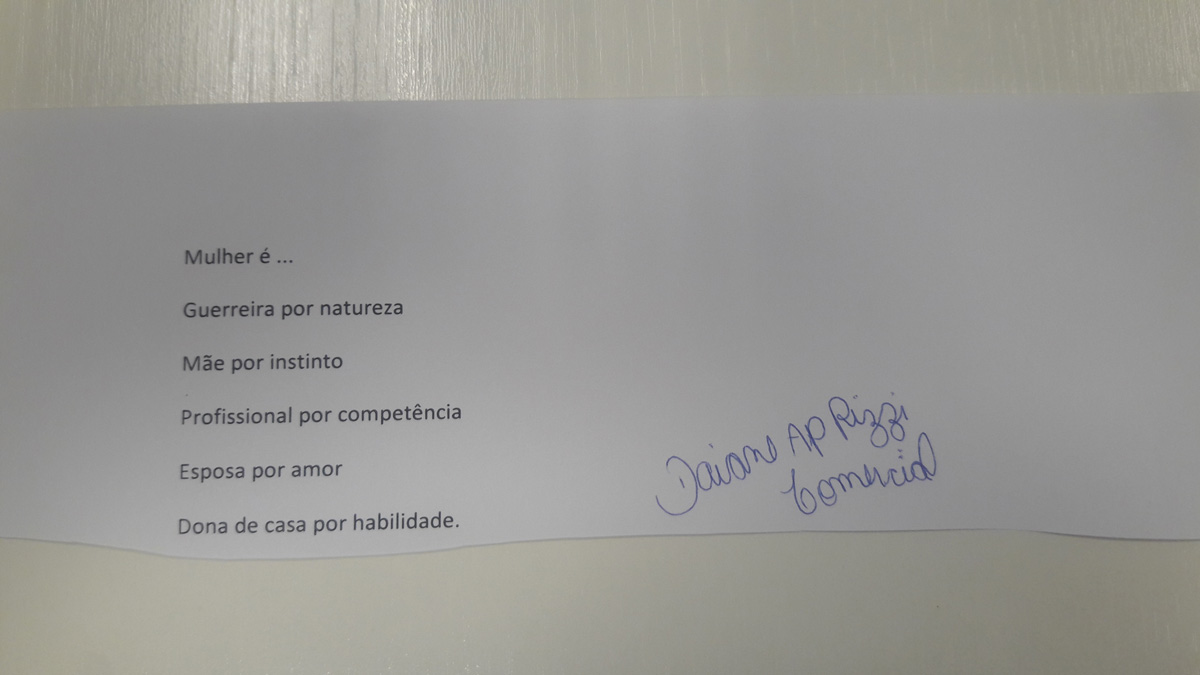 Mulher é ...
Guerreira por natureza
Mãe por instinto
Profissional por competência
Esposa por amor
Dona de casa por habilidade.
Daiane AP Rizzi
Comercial